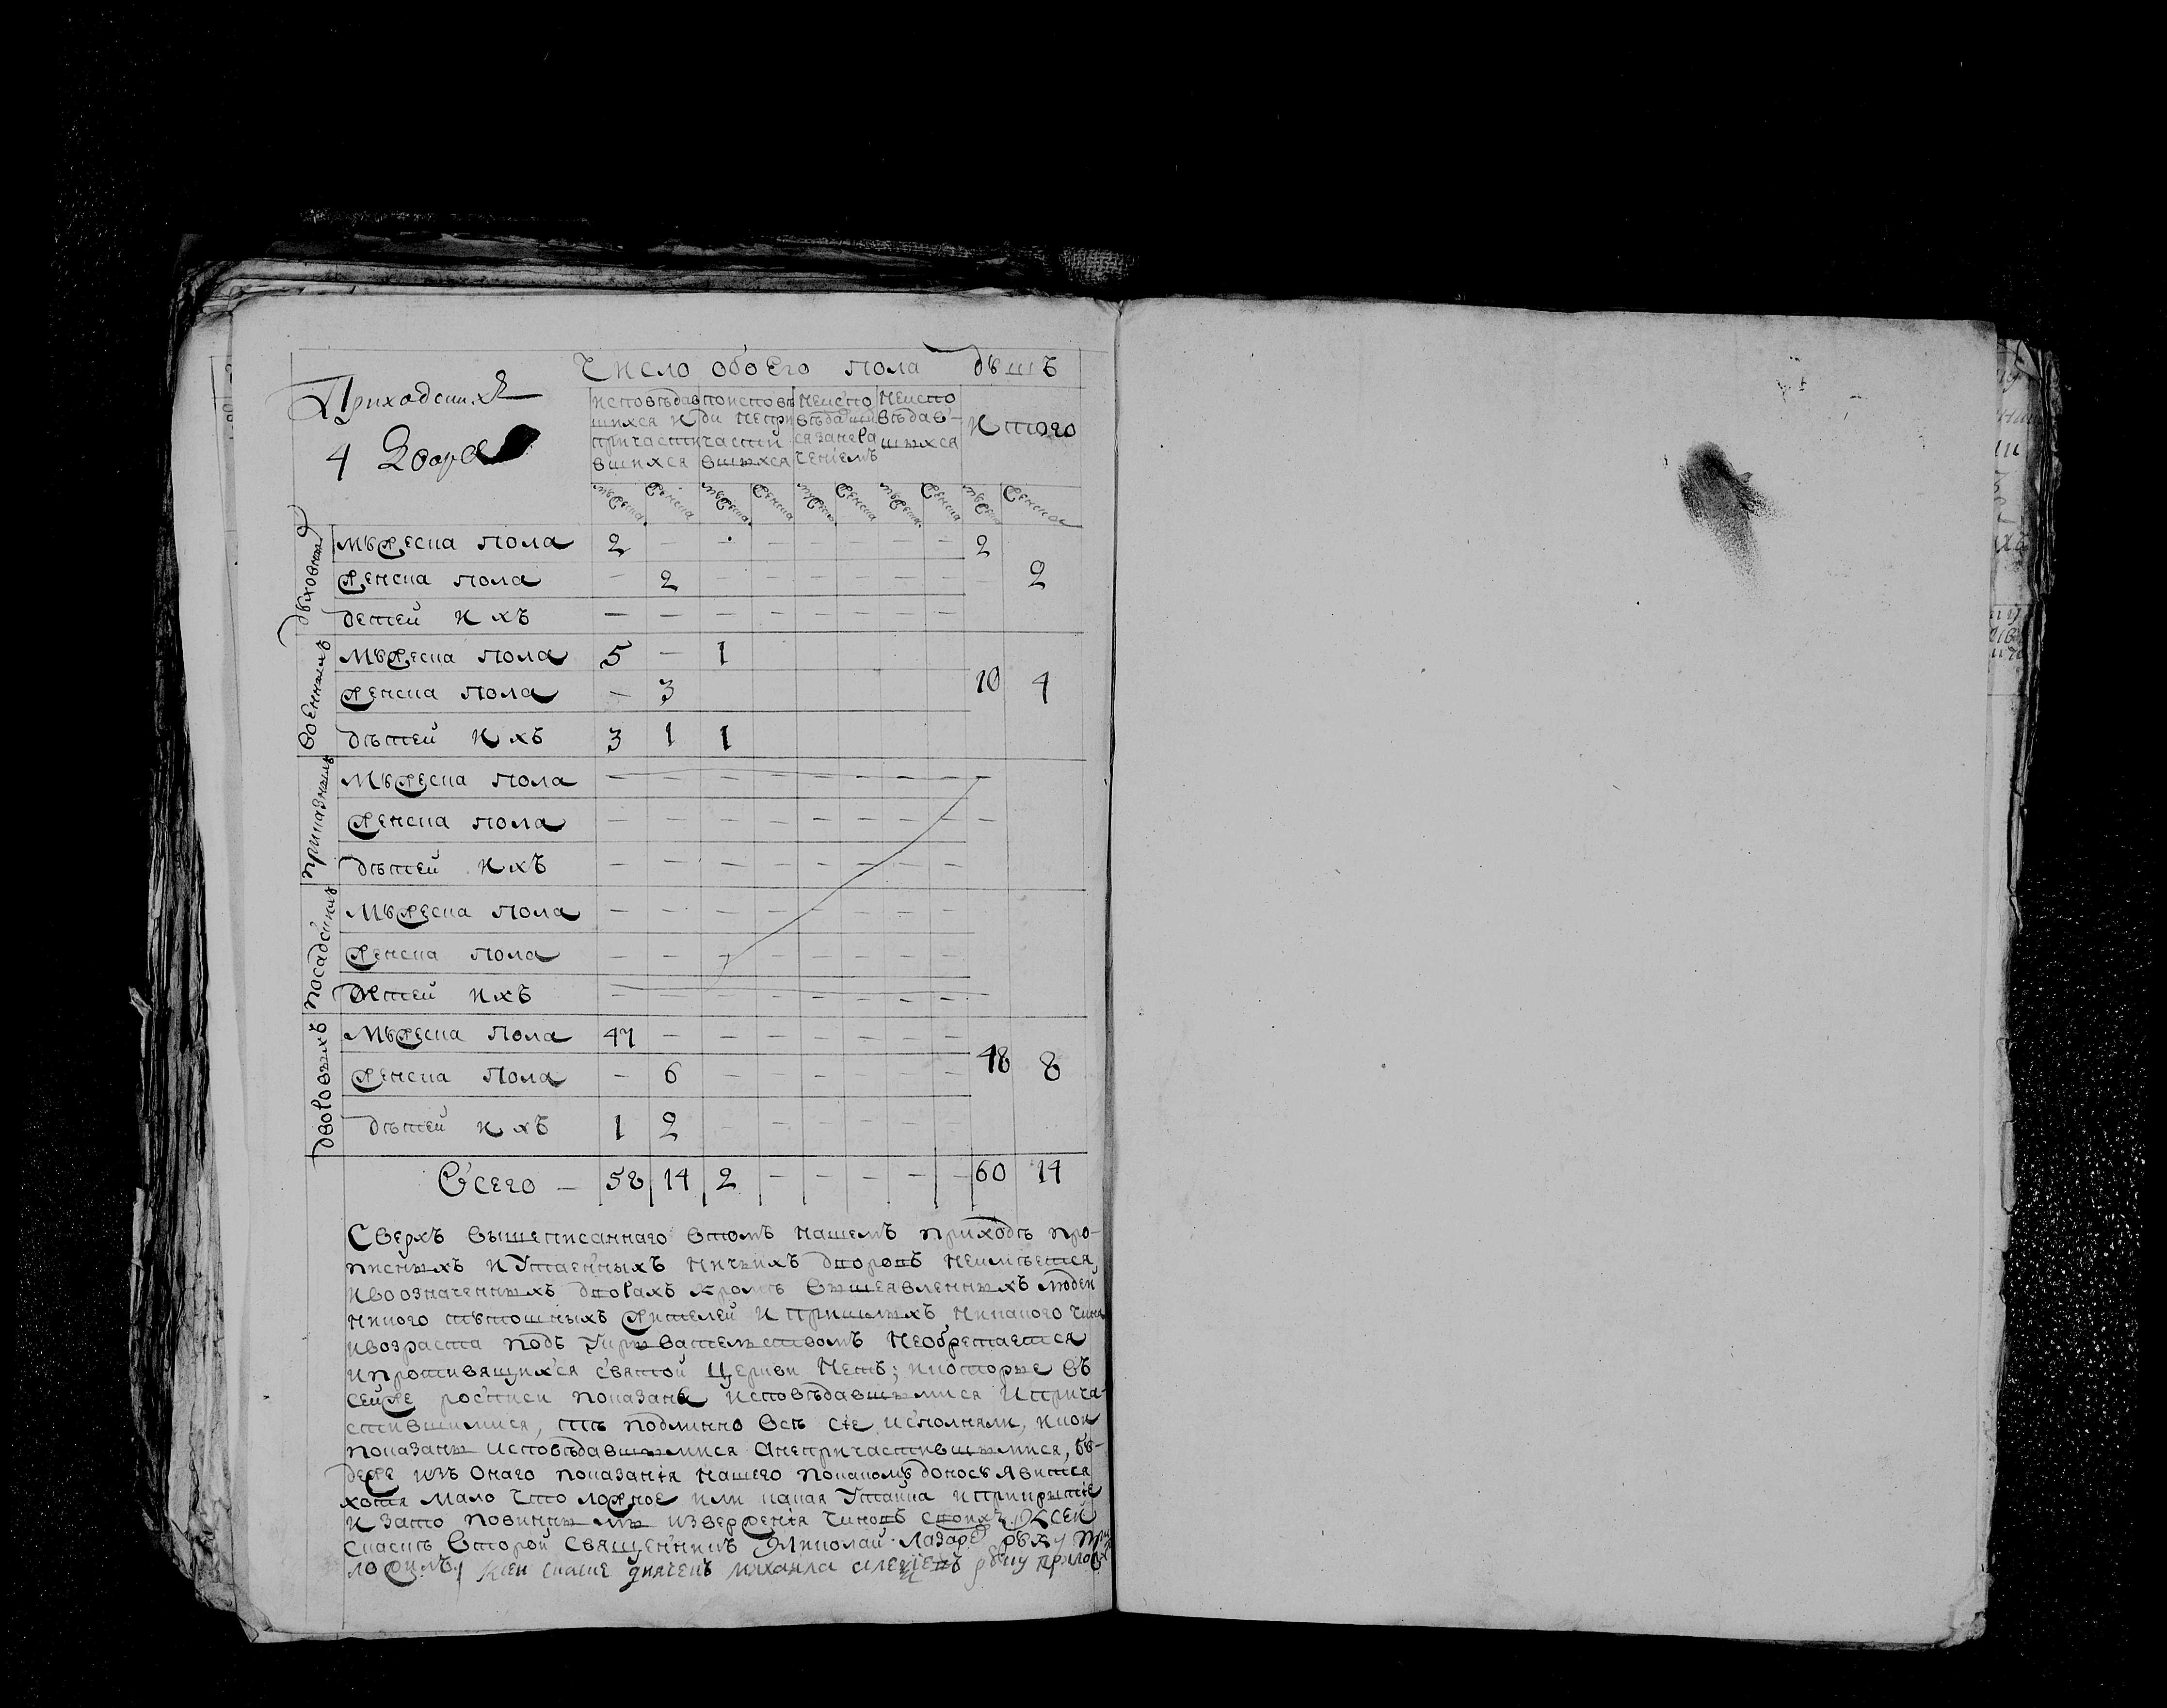 Число обоего пола душъ
Приходских
4 двора
исповѣдавшихся и причастившихся
по исповѣди не причастившихся
не исповѣдавшихся за малолѣчениемъ
не исповѣдавшихся
Итого
мужеска женска мужеска женска мужеска женска мужеска женска мужеска женска
духовных
мужеска пола 2 — — — — — — — 2
женска пола — 2 — — — — — — 2
детей ихъ — — — — — — — —
военныхъ
мужеска пола 5 — 1
женска пола — 3 10 4
дѣтей ихъ 3 1 1
приказныхъ
мужеска пола — — — — — — — — —
женска пола — — — — — — — — —
дѣтей ихъ — — — — — — — —
посадскихъ
мужеска пола — — — — — — — —
женска пола — — — — — — — —
дѣтей ихъ — — — — — — — — —
дворовыхъ
мужеска пола 47 — — — — — — —
женска пола — 6 — — — — — — 48 8
дѣтей ихъ 1 2 — — — — — —
Всего — 58 14 2 — — — — — 60 14
Сверхъ вышеписаннаго втомъ нашемъ приходѣ про-
писныхъ иутаенныхъ ничьихъ дворовъ неимѣется,
ивоозначенныхъ дворахъ кромѣ вышеявленныхъ людей
никого тутошныхъ жителей и пришлыхъ никакого чина
ивозраста подъ укрывательствомъ необретается
ипротивящихся святой церкви нетъ; икоторые въ
сейже росписи показаны исповѣдавшимися иприча-
стившимися, тѣ подлинно всѣ сіе исполняли, икои
показаны исповѣдавшимися анепричастившимися, бу-
деже изъ онаго показанія нашего покакомъ доносу явится
хотя мало что ложное или какая утайка иприкрытіе
и зато повинны мы изверженія чиновъ своихъ. Ксей
сказкѣ второй священникъ Николай Лазаре руку при
ложилъ / ксеи скаске дьяченъ михаила алеѯіевъ руку прилож